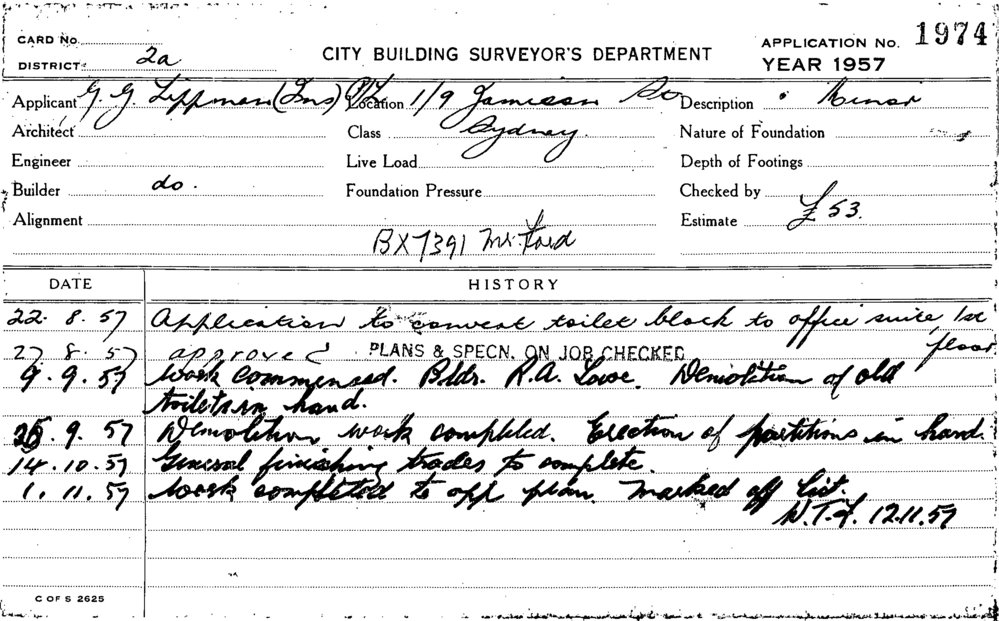 CARD No.
DISTRICT 2a
CITY BUILDING SURVEYOR'S DEPARTMENT
APPLICATION No. 1974
YEAR 1957
Applicant G. G. Lippman (Ins) P/L Location 1/9 Jamieson Description Minor
Architect Class Sydney. Nature of Foundation
Engineer Live Load Depth of Footings
Builder do. Foundation Pressure Checked by
Alignment Estimate £53.
BX7391 Mr. Ford
DATE HISTORY
22. 8. 57 Application to convert toilet block to office suite, 1st floor
27 8. 57 approved PLANS & SPECN. ON JOB CHECKED
9. 9. 57 Work commenced. Bldr. R.A. Lowe. Demolition of old
toilets in hand.
9. 57 Demolition work completed. Erection of partitions in hand.
14. 10. 57 General finishing trades to complete.
1. 11. 57 Work completed to app plan. Marked off List.
12.11.57
C OF S 2625